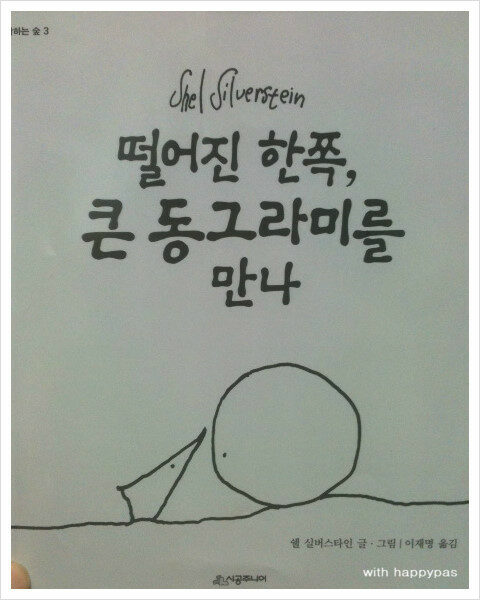 하는 숲 3
Shel Silverstein
떨어진 한쪽,
큰 동그라미를
만나
쉘 실버스타인 글·그림 | 이재명 옮김
시공주니어
with happypas